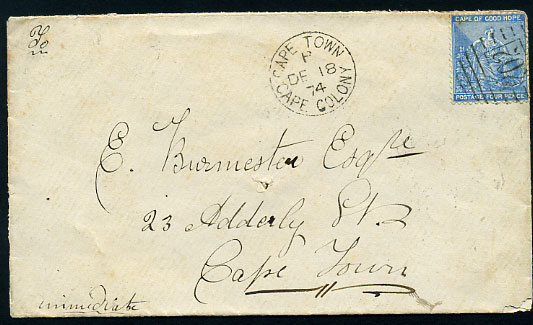 To
CAPE TOWN
P
DE 18
74
CAPE COLONY
CAPE OF GOOD HOPE
POSTAGE FOUR PENCE
E. Burmester Esqre
23 Adderly St.
Cape Town
immediate